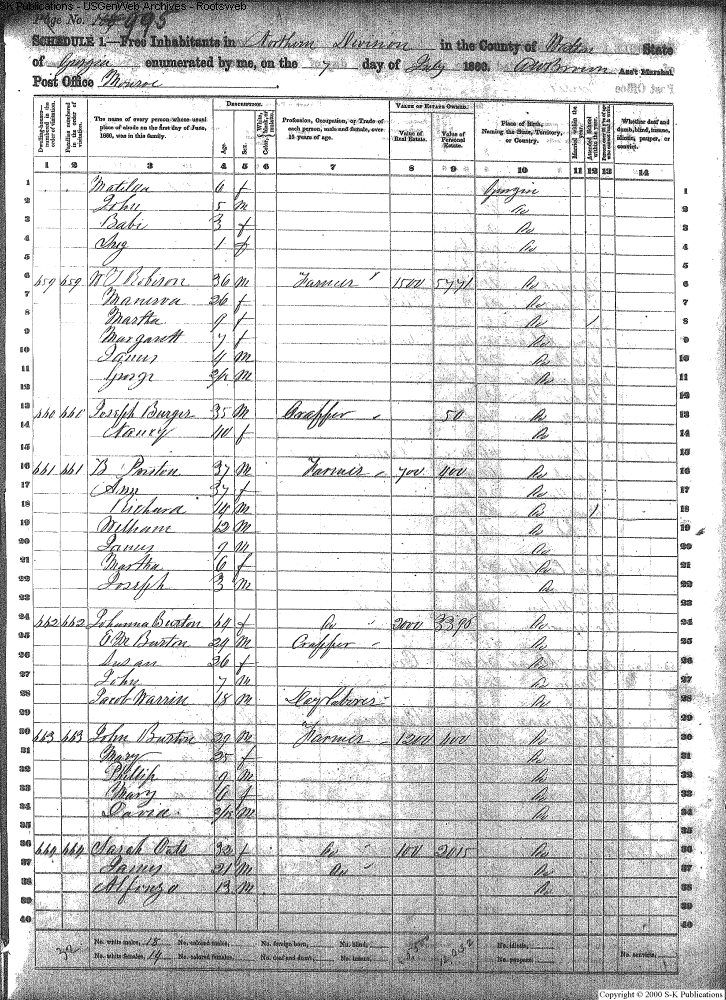 S-K Publications - USGenWeb Archives - Rootsweb
Page No. 995
SCHEDULE 1.—Free Inhabitants in Northern Division in the County of Walton State
of Georgia enumerated by me, on the 7 day of July 1860. Ass't Marshal
Post Office Monroe
DESCRIPTION. VALUE OF ESTATE OWNED.
Dwelling-houses—numbered in the order of visitation. Families numbered in the order of visitation. The name of every person whose usual place of abode on the first day of June, 1860, was in this family. Age. Sex. Color, White, black, or mulatto. Profession, Occupation, or Trade of each person, male and female, over 15 years of age. Value of Real Estate. Value of Personal Estate. Place of Birth, Naming the State, Territory, or Country. Married within the year. Attended School within the year. Whether deaf and dumb, blind, insane, idiotic, pauper, or convict.
1 2 3 4 5 6 7 8 9 10 11 12 13 14
1 Matilda 6 f Georgia 1
2 John 5 m Do 2
3 Babe 3 f Do 3
4 1 f Do 4
5 5
6 659 659 W J Roberson 36 m Farmer " 1500 5771 Do 6
7 Manerva 26 f Do 7
8 Martha 9 f Do 1 8
9 Margarett 7 f Do 9
10 James 4 m Do 10
11 George 2/12 m Do 11
12 12
13 660 660 Joseph Burger 35 m Crapper " 50 Do 13
14 Nancy 40 f Do 14
15 15
16 661 661 B Preston 37 m Farmer " 700 400 Do 16
17 Amy 37 f Do 17
18 Richard 14 m Do 1 18
19 William 12 m Do 19
20 James 9 m Do 20
21 Martha 6 f Do 21
22 Joseph 3 m Do 22
23 23
24 662 662 Johanna Burton 64 f Do " 2000 3390 Do 24
25 Burton 29 m Crapper " Do 25
26 Susan 26 f Do 26
27 John 7 m Do 27
28 Jacob Warrin 18 m Day Laborer Do 28
29 29
30 663 663 John Burton 29 m Farmer " 1200 600 Do 30
31 Mary 25 f Do 31
32 Phillip 9 m Do 32
33 Mary 6 f Do 33
34 David m Do 34
35 35
36 664 664 Sarah Oats 52 f Do " 100 2015 Do 36
37 James 21 m Do " Do 37
38 Alfonzo 13 m Do 38
39 39
40 40
No. white males, 18 No. colored males, No. foreign born, No. blind, No. idiotic,
No. white females, 19 No. colored females, No. deaf and dumb, No. insane, No. paupers, No. convicts,
Copyright © 2000 S-K Publications